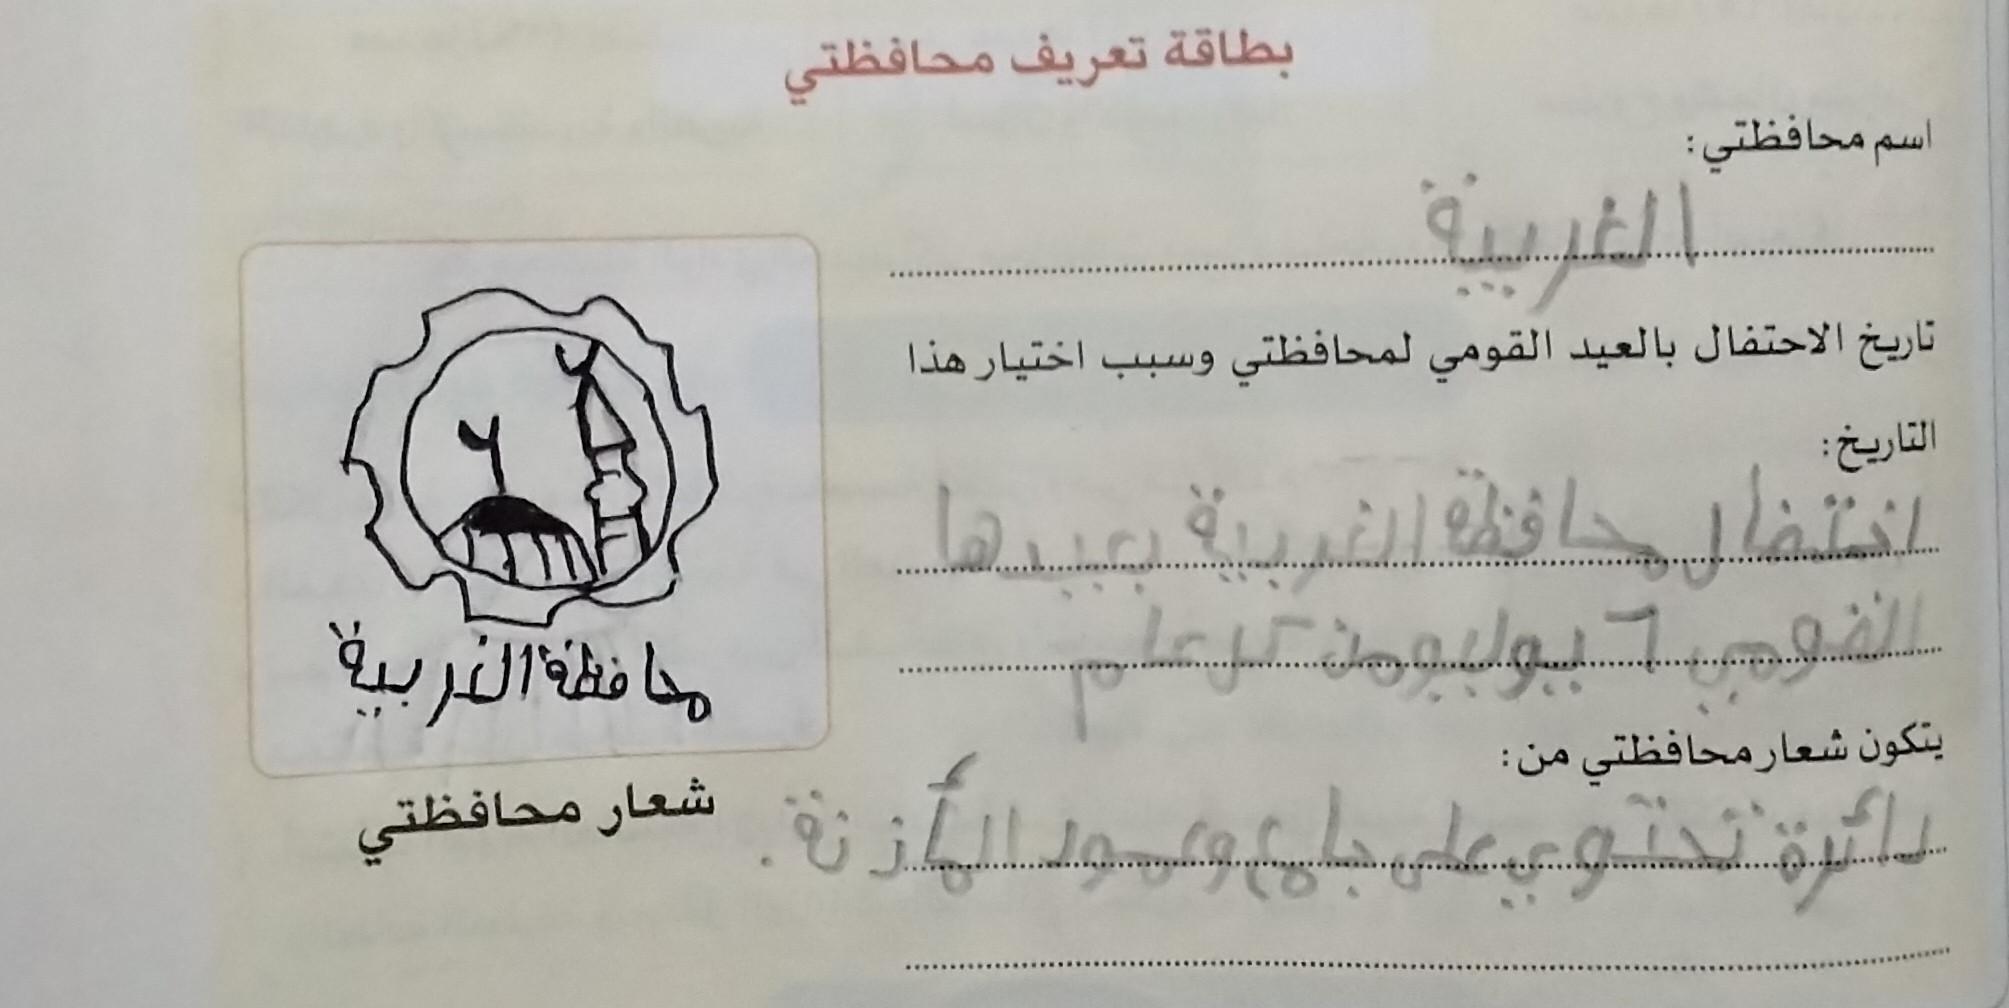 بطاقة تعريف محافظتي
اسم محافظتي:
الغربية
تاريخ الاحتفال بالعيد القومي لمحافظتي وسبب اختيار هذا
التاريخ:
احتفال محافظة الغربية بعيدها
القومي ٦ يوليو من كل عام
يتكون شعار محافظتي من:
دائرة تحتوي على جامع وعمود المأزنة.
محافظة الغربية
شعار محافظتي